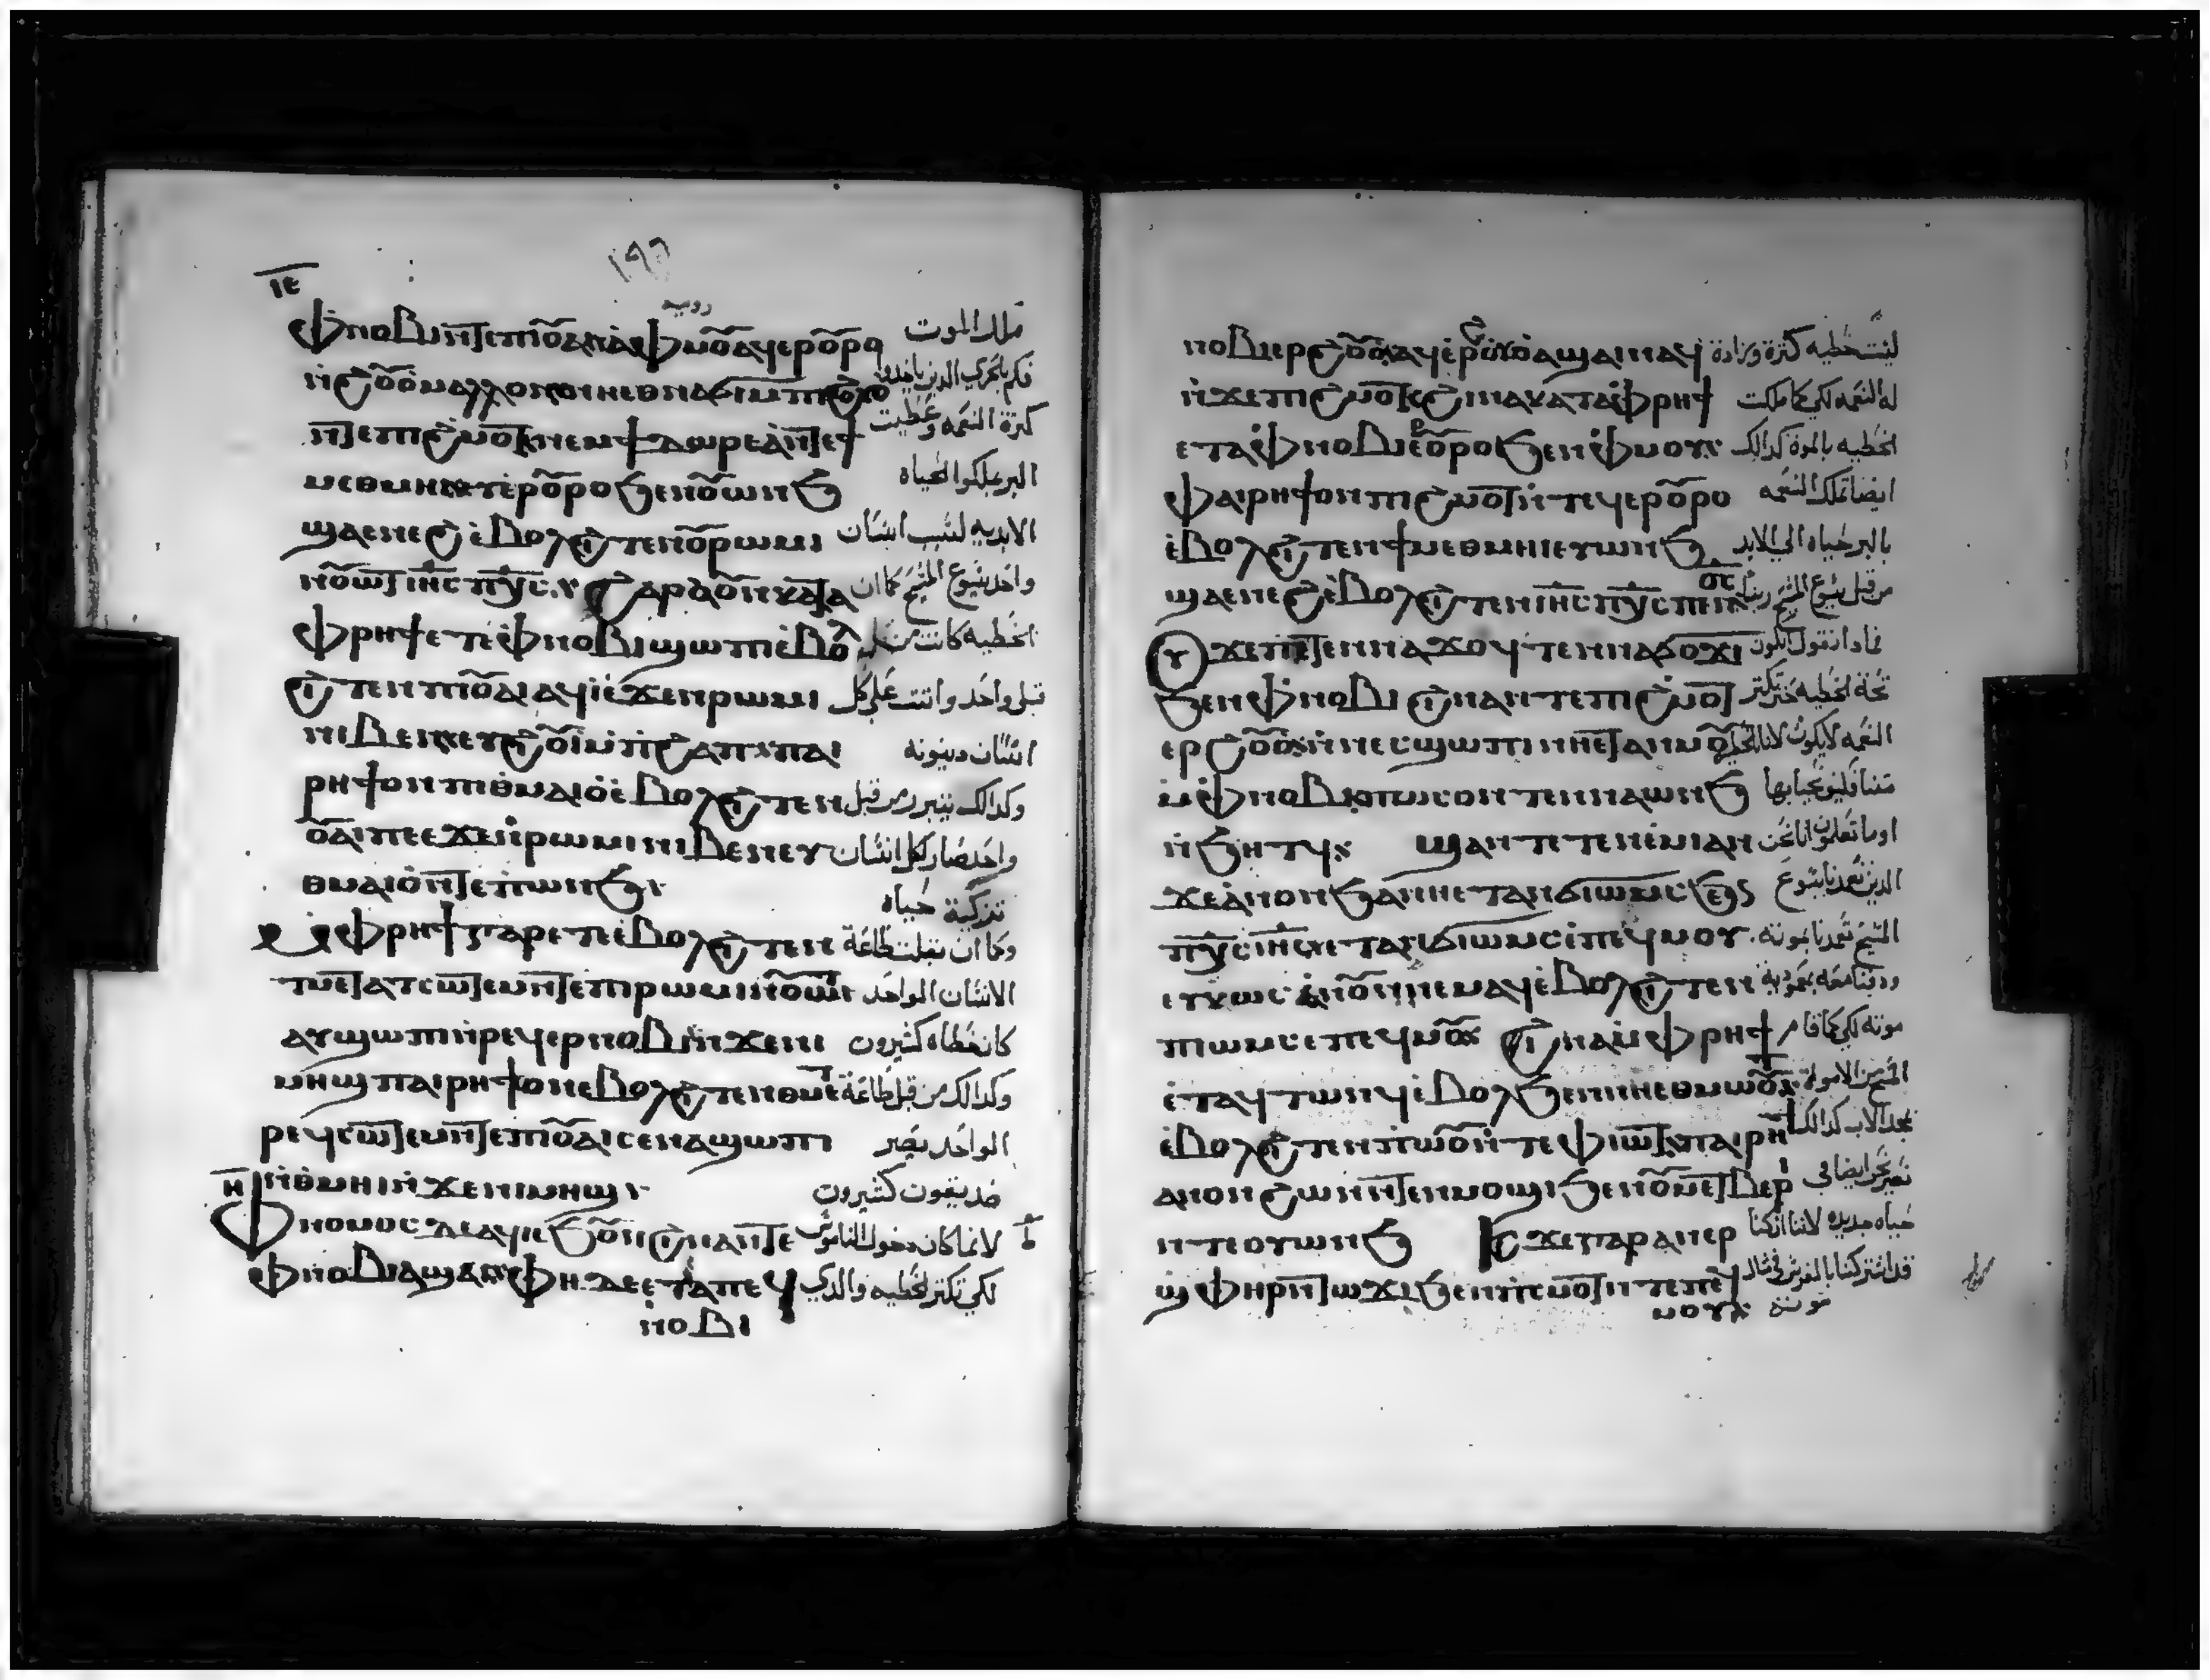 ⲓⲉ
١٩٦
رومية
ⲫⲛⲟⲃⲓ ⲛⲧⲉ ⲡⲓⲟⲩⲁⲓ ⲁ ⲫⲙⲟⲩ ⲁϥⲉⲣⲟⲩⲣⲟ ملك الموت
ⲛϩⲟⲩⲟ ⲙⲁⲗⲗⲟⲛ ⲛⲏ ⲉⲑⲛⲁϭⲓ ⲙⲡⲓϩⲟⲩⲟ فكم بالحري الدين ياخدوا
ⲛⲧⲉ ⲡⲓϩⲙⲟⲧ ⲛⲉⲙ ϯⲇⲱⲣⲉⲁ ⲛⲧⲉ ϯ كترة النعمه وعطيت
ⲙⲉⲑⲙⲏⲓ ⲉⲩⲉⲣⲟⲩⲣⲟ ϧⲉⲛ ⲟⲩⲱⲛϧ البر يملكوا الحياه
ϣⲁ ⲉⲛⲉϩ ⲉⲃⲟⲗϩⲓⲧⲉⲛ ⲟⲩⲣⲱⲙⲓ الابديه لسبب انسان
ⲛⲟⲩⲱⲧ ⲓⲏⲥ ⲡⲭⲥ ϩⲁⲣⲁ ⲟⲩⲛ واحد يسوع المسيح كما ان
ⲫⲣⲏϯ ⲉⲧⲉ ⲫⲛⲟⲃⲓ ϣⲱⲡⲓ ⲉⲃⲟⲗ الخطيه كانت من
ϩⲓⲧⲉⲛ ⲡⲓⲟⲩⲁⲓ ⲁϥⲓ ⲉϫⲉⲛ ⲣⲱⲙⲓ قبل واحد واتت على كل
ⲛⲓⲃⲉⲛ ⲉⲩϩⲓⲟⲩⲓ ⲙⲡϩⲁⲡ ⲡⲁⲓ انسان دينونه
ⲣⲏϯ ⲟⲛ ⲡⲓⲑⲙⲁⲓⲟ ⲉⲃⲟⲗϩⲓⲧⲉⲛ وكدالك تبرر من قبل
ⲟⲩⲁⲓ ⲡⲉ ⲉϫⲉⲛ ⲣⲱⲙⲓ ⲛⲓⲃⲉⲛ ⲉⲩ واحد صار كل انسان
ⲑⲙⲁⲓⲟ ⲛⲧⲉ ⲡⲱⲛϧ تزكية حياه
ⲙⲫⲣⲏϯ ⲅⲁⲣ ⲉⲧⲉ ⲉⲃⲟⲗϩⲓⲧⲉⲛ وكما ان بقلت طاعة
ⲧⲙⲉⲧⲁⲧⲥⲱⲧⲉⲙ ⲛⲧⲉ ⲡⲓⲣⲱⲙⲓ ⲛⲟⲩⲱⲧ الانسان الواحد
ⲁⲩϣⲱⲡⲓ ⲛⲣⲉϥⲉⲣⲛⲟⲃⲓ ⲛϫⲉ ⲛⲓ كان خطاه كثيرون
ⲙⲏϣ ⲡⲁⲓⲣⲏϯ ⲟⲛ ⲉⲃⲟⲗϩⲓⲧⲉⲛ ⲑⲙⲉⲧ وكدالك من قبل طاعة
ⲣⲉϥⲥⲱⲧⲉⲙ ⲛⲧⲉ ⲡⲓⲟⲩⲁⲓ ⲥⲉⲛⲁϣⲱⲡⲓ الواحد يصير
ⲏ ⲛⲑⲙⲏⲓ ⲛϫⲉ ⲛⲓⲙⲏϣ صديقون كثيرون
ⲫⲛⲟⲙⲟⲥ ⲇⲉ ⲁϥⲓ ⲉϧⲟⲩⲛ ϩⲓⲛⲁ ⲛⲧⲉ لانما كان دخول الناموس
ⲫⲛⲟⲃⲓ ⲁϣⲁⲓ ⲫⲏ ⲇⲉ ⲉⲧⲁ ⲡⲉϥ لكي تكتر الخطيه والدي
ⲛⲟⲃⲓ
ⲛⲟⲃⲓ ⲉⲣϩⲟⲩⲟ ⲁϥⲉⲣϩⲟⲩⲟ ⲁϣⲁⲓ ⲛⲁϥ خطيه كترة وزادة
ⲛϫⲉ ⲡⲓϩⲙⲟⲧ ϩⲓⲛⲁ ⲕⲁⲧⲁ ⲫⲣⲏϯ له النعمه لكي كما ملكت
ⲉⲧⲁ ⲫⲛⲟⲃⲓ ⲉⲣⲟⲩⲣⲟ ϧⲉⲛ ⲫⲙⲟⲩ الخطيه بالموة كدالك
ⲫⲁⲓⲣⲏϯ ⲟⲛ ⲡⲓϩⲙⲟⲧ ⲛⲧⲉϥⲉⲣⲟⲩⲣⲟ ايضا تملك النعمه
ⲉⲃⲟⲗϩⲓⲧⲉⲛ ϯⲙⲉⲑⲙⲏⲓ ⲉⲩⲱⲛϧ بالبر حياه الي الابد
ϣⲁ ⲉⲛⲉϩ ⲉⲃⲟⲗϩⲓⲧⲉⲛ ⲓⲏⲥ ⲡⲭⲥ ⲡⲉⲛⲟⲥ من قبل يسوع المسيح ربنا
ⲟⲩ ϫⲉ ⲡⲉⲧⲉⲛⲛⲁϫⲟϥ ⲧⲉⲛⲛⲁⲟϩⲓ فمادا نقول انكون
ϧⲉⲛ ⲫⲛⲟⲃⲓ ϩⲓⲛⲁ ⲛⲧⲉ ⲡⲓϩⲙⲟⲧ تحة الخطيه حتى تكتر
ⲉⲣϩⲟⲩⲟ ⲛⲛⲉⲥϣⲱⲡⲓ ⲛⲏ ⲉⲧⲁⲛⲙⲟⲩ النعمه لا يكون لاننا
ⲙⲫⲛⲟⲃⲓ ⲡⲱⲥ ⲟⲛ ⲧⲉⲛⲛⲁⲱⲛϧ متنا فكيف نحيا بها
ⲛϧⲏⲧϥ ϣⲁⲛ ⲧⲉⲧⲉⲛⲉⲙⲓ ⲁⲛ اوما تعلمون انا نحن
ϫⲉ ⲁⲛⲟⲛ ϧⲁ ⲛⲏ ⲉⲧⲁⲛϭⲓⲱⲙⲥ ⲉ الدين تعمدنا بيسوع
ⲡⲭⲥ ⲓⲏⲥ ⲉⲧⲁⲛϭⲓⲱⲙⲥ ⲉⲡⲉϥⲙⲟⲩ المسيح تعمدنا بموته
ⲉⲧⲕⲱⲥ ⲙⲙⲟⲛ ⲛⲉⲙⲁϥ ⲉⲃⲟⲗϩⲓⲧⲉⲛ ودفنا معه بمعمودية
ⲡⲓⲱⲙⲥ ⲉⲡⲉϥⲙⲟⲩ ϩⲓⲛⲁ ⲙⲫⲣⲏϯ موته لكي كما قام
ⲉⲧⲁϥⲧⲱⲛϥ ⲉⲃⲟⲗϧⲉⲛ ⲛⲏ ⲉⲑⲙⲱⲟⲩⲧ المسيح من الاموات
ⲉⲃⲟⲗϩⲓⲧⲉⲛ ⲡⲱⲟⲩ ⲛⲧⲉ ⲫⲓⲱⲧ ⲡⲁⲓⲣⲏϯ بمجد الاب كدالك
ⲁⲛⲟⲛ ϩⲱⲛ ⲛⲧⲉⲛⲙⲟϣⲓ ϧⲉⲛ ⲟⲩⲙⲉⲧⲃⲉⲣⲓ نصير نحن ايضا في
ⲛⲧⲉ ⲟⲩⲱⲛϧ ⲓⲥϫⲉ ⲅⲁⲣ ⲁⲛⲉⲣ حياه جديده لاننا ان كنا
ϣⲫⲏⲣ ⲛⲧⲱϫⲓ ϧⲉⲛ ⲡⲓⲥⲙⲟⲧ ⲛⲧⲉ ⲡⲉϥ قد اشتركنا بالغرس في متال
ⲙⲟⲩ موته